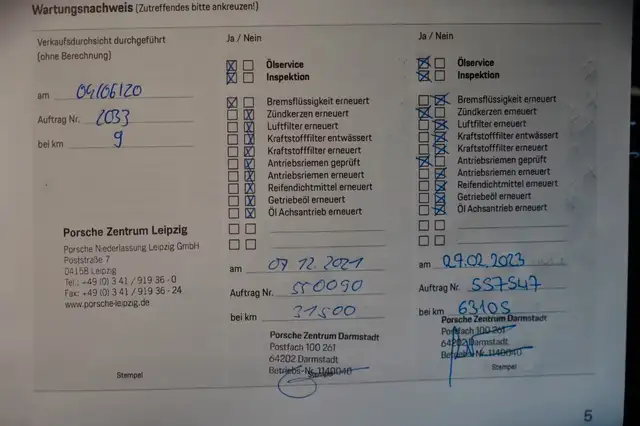 Wartungsnachweis (Zutreffendes bitte ankreuzen!)
Verkaufsdurchsicht durchgeführt
(ohne Berechnung)
am 09/06/20
Auftrag Nr. 2033
bei km 9
Porsche Zentrum Leipzig
Porsche Niederlassung Leipzig GmbH
Poststraße 7
04158 Leipzig
Tel.: +49 (0) 3 41 / 919 36 - 0
Fax: +49 (0) 3 41 / 919 36 - 24
www.porsche-leipzig.de
Stempel
Ja / Nein
Ölservice
Inspektion
Bremsflüssigkeit erneuert
Zündkerzen erneuert
Luftfilter erneuert
Kraftstofffilter entwässert
Kraftstofffilter erneuert
Antriebsriemen geprüft
Antriebsriemen erneuert
Reifendichtmittel erneuert
Getriebeöl erneuert
Öl Achsantrieb erneuert
am 07.12.2021
Auftrag Nr. 550090
bei km 31500
Porsche Zentrum Darmstadt
Postfach 100 261
64202 Darmstadt
Betriebs-Nr. 1140040
Stempel
Ja / Nein
Ölservice
Inspektion
Bremsflüssigkeit erneuert
Zündkerzen erneuert
Luftfilter erneuert
Kraftstofffilter entwässert
Kraftstofffilter erneuert
Antriebsriemen geprüft
Antriebsriemen erneuert
Reifendichtmittel erneuert
Getriebeöl erneuert
Öl Achsantrieb erneuert
am .02.2023
Auftrag Nr. 557547
bei km 63105
Porsche Zentrum Darmstadt
Postfach 100 261
64202 Darmstadt
Betriebs-Nr. 1140040
Stempel
5